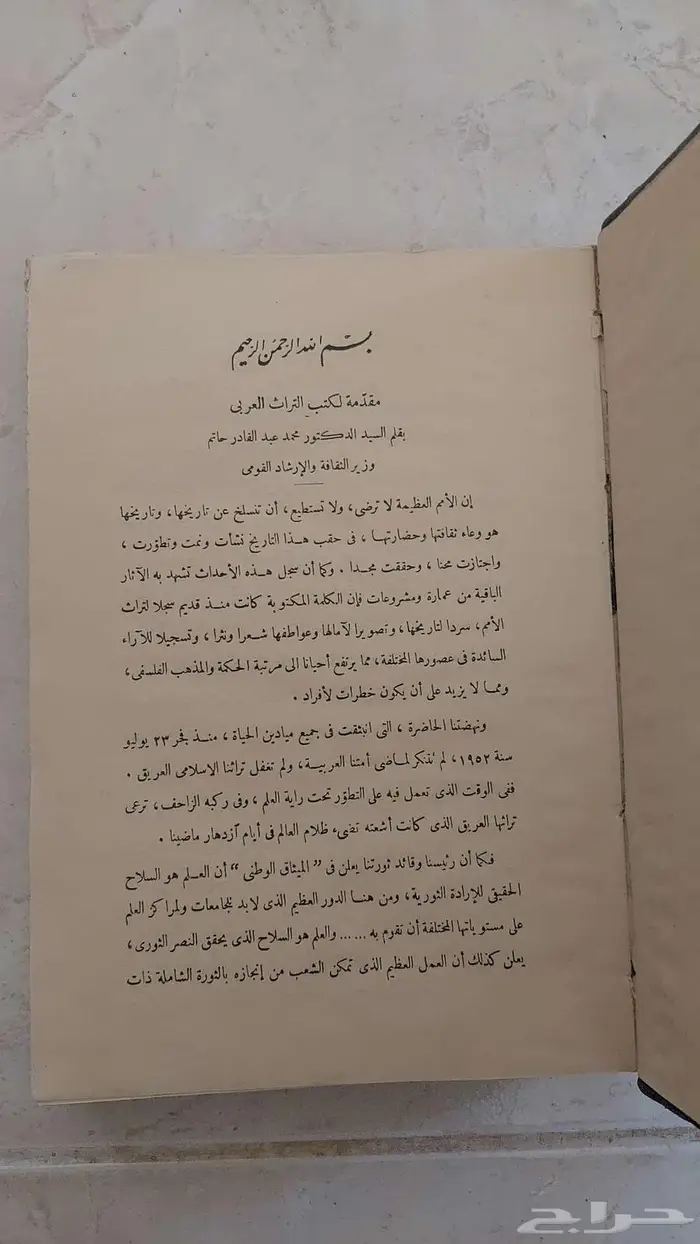 بسم الله الرحمن الرحيم
مقدّمة لكتب التراث العربى
بقلم السيد الدكتور محمد عبد القادر حاتم
وزير الثقافة والإرشاد القومى
إن الأمم العظيمة لا ترضى، ولا تستطيع، أن تنسلخ عن تاريخها، وتاريخها
هو وعاء ثقافتها وحضارتها ، فى حقب هذا التاريخ نشأت ونمت وتطوّرت ،
واجتازت محنا ، وحققت مجدا . وكما أن سجل هذه الأحداث تشهد به الآثار
الباقية من عمارة ومشروعات فإن الكلمة المكتوبة كانت منذ قديم سجلا لتراث
الأمم، سردا لتاريخها، وتصويرا لآمالها وعواطفها شعرا ونثرا ، وتسجيلا للآراء
السائدة فى عصورها المختلفة، مما يرتفع أحيانا الى مرتبة الحكمة والمذهب الفلسفى،
ومما لا يزيد على أن يكون خطرات لأفراد .
ونهضتنا الحاضرة ، التى انبثقت فى جميع ميادين الحياة ، منذ فجر ٢٣ يوليو
سنة ١٩٥٢، لم تتنكر لماضى أمتنا العربية، ولم تغفل تراثنا الاسلامى العريق .
ففى الوقت الذى تعمل فيه على التطوّر تحت راية العلم ، وفى ركبه الزاحف، ترعى
تراثها العريق الذى كانت أشعته تضىء ظلام العالم فى أيام آزدهار ماضينا .
فكما أن رئيسنا وقائد ثورتنا يعلن فى ”الميثاق الوطنى“ أن العلم هو السلاح
الحقيق للإرادة الثورية، ومن هنا الدور العظيم الذى لابد للجامعات ولمراكز العلم
على مستوياتها المختلفة أن تقوم به ... ... والعلم هو السلاح الذى يحقق النصر الثورى،
يعلن كذلك أن العمل العظيم الذى تمكن الشعب من إنجازه بالثورة الشاملة ذات
حراج